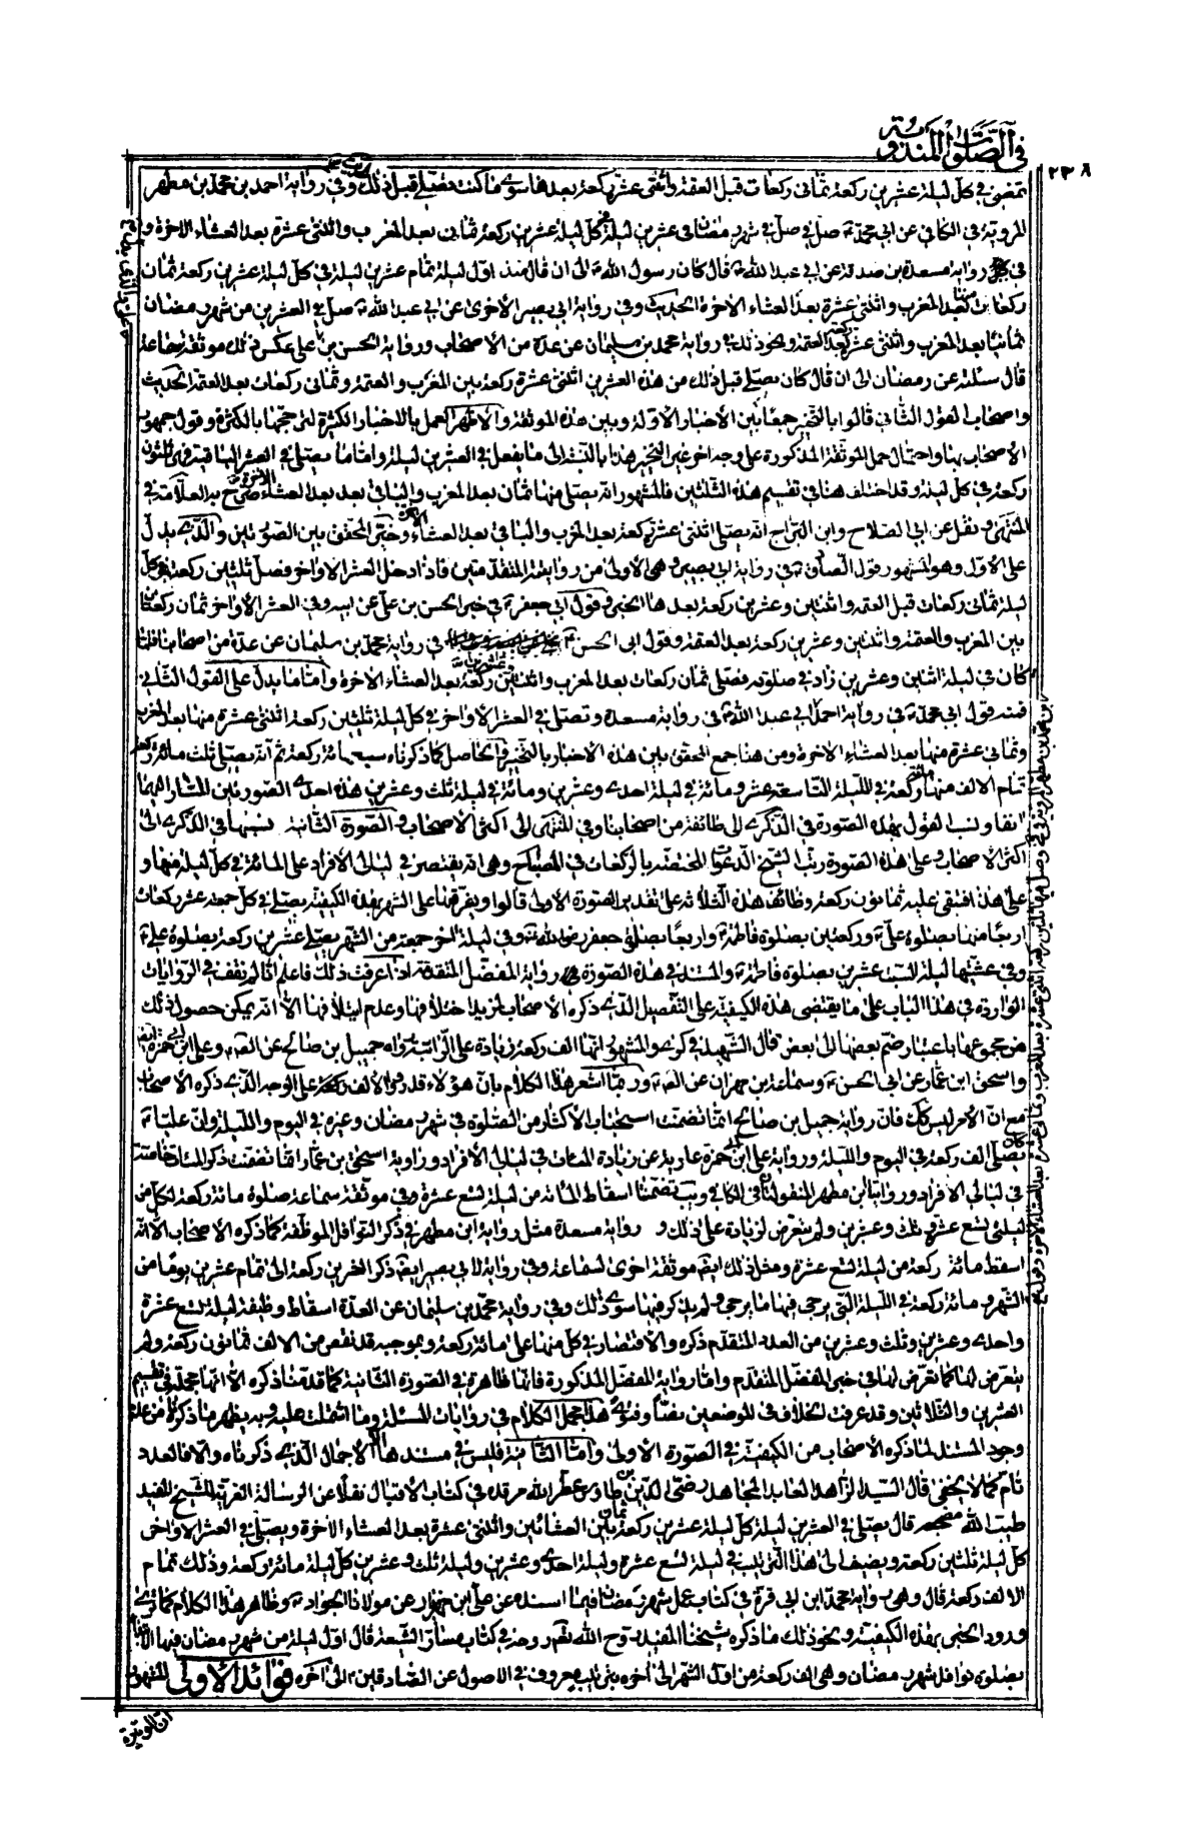 في الصلوة المندوبة
٢٣٨
تمضي في كل ليلة عشرين ركعة ثماني ركعات قبل العتمة واثنتي عشرة ركعة بعدها سوى ما كنت تصلي قبل ذلك وفي رواية احمد بن محمد بن مطهر
المروية في الكافي عن ابي محمد صل في شهر رمضان في عشرين ليلة كل ليلة عشرين ركعة ثمانى بعد المغرب واثنتي عشرة بعد العشاء الاخرة و
في رواية مسعدة بن صدقة عن ابي عبد الله قال كان رسول الله الى ان قال منذ اول ليلة تمام عشرين ليلة في كل ليلة عشرين ركعة ثمان
ركعات بعد المغرب واثنتي عشرة بعد العشاء الاخرة الحديث وفي رواية ابي بصير الاخرى عن ابي عبد الله صل في العشرين من شهر رمضان
ثمانيا بعد المغرب واثنتي عشرة ركعة بعد العتمة ونحو ذلك في رواية محمد بن سليمان عن عدة من الاصحاب ورواية الحسن بن علي عكس ذلك موثقة سماعة
قال سئلته عن رمضان الى ان قال كان يصلي قبل ذلك من هذه العشرين اثنتي عشرة ركعة بين المغرب والعتمة وثماني ركعات بعد العتمة الحديث
واصحاب القول الثاني قالوا بالتخيير جمعا بين الاخبار الاولة وبين هذه الموثقة والاظهر العمل بالاخبار الكثيرة لترجحها بالكثرة وقول جمهور
الاصحاب بها واحتمال حمل الموثقة المذكورة على وجه اخر غير التخيير هذا بالنسبة الى ما يفعل في العشرين ليلة واما ما يصلي في العشر الباقية فهي ثلثون
ركعة في كل ليلة وقد اختلف هنا في تقسيم هذه الثلثين فالمشهور انه يصلي منها ثمان بعد المغرب والباقي بعد العشاء الاخرة صرح به العلامة في
المنتهى ونقل عن ابي الصلاح وابن البراج انه يصلي اثنتي عشرة ركعة بعد المغرب والباقي بعد العشاء الاخرة وخير المحقق بين الصورتين والذي يدل
على الاول وهو المشهور قول الصادق في رواية ابي بصير وهي الاولى من روايتيه المتقدمتين فاذا دخل العشر الاواخر فصل ثلثين ركعة كل
ليلة ثماني ركعات قبل العتمة واثنتين وعشرين ركعة بعدها الخبر وقول ابي جعفر في خبر الحسن بن علي عن ابيه وفي العشر الاواخر ثمان ركعات
بين المغرب والعتمة واثنتين وعشرين ركعة بعد العتمة وقول ابي الحسن في رواية محمد بن سليمان عن عدة من اصحابنا فلما
كان في ليلة اثنين وعشرين زاد في صلوته فصلى ثمان ركعات بعد المغرب واثنتين وعشرين ركعة بعد العشاء الاخرة واما ما يدل على القول الثاني
فمنه قول ابي محمد في رواية احمد وابي عبد الله في رواية مسعدة وتصلي في العشر الاواخر في كل ليلة ثلثين ركعة اثنتي عشرة منها بعد المغرب
وثماني عشرة منها بعد العشاء الاخرة ومن هنا جمع المحقق بين هذه الاخبار بالتخيير والحاصل كما ذكرناه سبعمائة ركعة ثم انه يصلي ثلث مائة ركعة
تمام الالف منها مائة ركعة في الليلة التاسعة عشر ومائة في ليلة احدى وعشرين ومائة في ليلة ثلث وعشرين هذه احدى الصورتين المشار اليهما
انفا ونسب القول بهذه الصورة في الذكرى الى طائفة من اصحابنا وفي المنتهى الى اكثر الاصحاب والصورة الثانية نسبها في الذكرى الى
اكثر الاصحاب وعلى هذه الصورة رتب الشيخ الدعوات المختصة بالركعات في المصباح وهي انه يقتصر في ليالي الافراد على المائة في كل ليلة منها و
على هذا فتبقى عليه ثمانون ركعة وظائف هذه الثلاثة على تقدير الصورة الاولى قالوا ويفرقها على الشهر بهذه الكيفية يصلي في كل جمعة عشر ركعات
اربعا منها بصلوة علي وركعتين بصلوة فاطمة واربعا بصلوة جعفر رضي الله عنه وفي ليلة اخر جمعة من الشهر يصلي عشرين ركعة بصلوة علي
وفي عشيتها ليلة السبت عشرين بصلوة فاطمة والمستند في هذه الصورة رواية المفضل المتقدمة اذا عرفت ذلك فاعلم انا لم نقف في الروايات
الواردة في هذا الباب على ما يقتضي هذه الكيفية على التفصيل الذي ذكره الاصحاب لمزيد اختلافها وعدم ايتلافها الا انه يمكن حصول ذلك
من مجموعها باعتبار ضم بعضها الى بعض قال الشهيد في كرى والمشهور انها الف ركعة زيادة على الراتبة رواه جميل بن صالح عن الصادق وعلي بن ابي حمزة
واسحق ابن عمار عن ابي الحسن وسماعة بن مهران عن الصادق وربما اشعر هذا الكلام بان هؤلاء قد رووا الالف ركعة على الوجه الذي ذكره الاصحاب
مع ان الامر ليس كك فان رواية جميل بن صالح انما تضمنت استحباب الاكثار من الصلوة في شهر رمضان وغيره في اليوم والليلة وان عليا
كان يصلي الف ركعة في اليوم والليلة ورواية علي ابن ابي حمزة عارية عن زيادة المئات في ليالي الافراد ورواية اسحق بن عمار انما تضمنت ذكر المئات خاصة
في ليالي الافراد وروايتا ابن مطهر المنقولتان في الكافي ويب تضمنتا اسقاط المائة من ليلة تسع عشرة وفي موثقة سماعة صلوة مائة ركعة لكل من
ليلتي تسع عشرة وثلث وعشرين ولم يتعرض لزيادة على ذلك و رواية مسعدة مثل رواية ابن مطهر في ذكر النوافل الموظفة كما ذكره الاصحاب الا انه
اسقط مائة ركعة من ليلة تسع عشرة ومثل ذلك ايضا موثقة اخرى لسماعة وفي رواية لابي بصير ايضا ذكر العشرين ركعة الى تمام عشرين يوما من
الشهر ومائة ركعة في الليلة التي يرجى فيها ما يرجى ولم يذكر فيها سوى ذلك وفي رواية محمد بن سليمان عن العدة اسقاط وظيفة ليلة تسع عشرة
واحدى وعشرين وثلث وعشرين من العدد المتقدم ذكره والاقتصار في كل منها على مائة ركعة وبموجبه قد نقص من الالف ثمانون ركعة ولم
يتعرض لها كما تعرض لها في خبر المفضل المتقدم واما رواية المفضل المذكورة فانها ظاهرة في الصورة الثانية كما قدمنا ذكره الا انها مجملة في تقسيم
العشرين والثلاثين وقد عرفت الخلاف في الموضعين نصا وفتوى هذا مجمل الكلام في روايات المسئلة وما اشتملت عليه وبه يظهر ما ذكرناه من عدم
وجود المستند لما ذكره الاصحاب من الكيفية في الصورة الاولى واما الثانية فليس في مستندها الا الاجمال الذي ذكرناه والا فالعدد
تام كما لا يخفى قال السيد الزاهد العابد المجاهد رضي الدين بن طاوس عطر الله مرقده في كتاب الاقبال نقلا عن الرسالة الغرية للشيخ المفيد
طيب الله مضجعه قال يصلي في العشرين ليلة كل ليلة عشرين ركعة ثمان بين العشائين واثنتي عشرة بعد العشاء الاخرة ويصلي في العشر الاواخر
كل ليلة ثلثين ركعة ويضيف الى هذا الترتيب في ليلة تسع عشرة وليلة احدى وعشرين وليلة ثلث وعشرين كل ليلة مائة ركعة وذلك تمام
الالف ركعة قال وهي رواية محمد ابن ابي قرة في كتاب عمل شهر رمضان فيما اسنده عن علي ابن مهزيار عن مولانا الجواد وظاهر هذا الكلام كما ترى
ورود الخبر بهذه الكيفية ونحو ذلك ما ذكره شيخنا المفيد روح الله تعم روحه في كتاب مسار الشيعة قال اول ليلة من شهر رمضان فيها الابتداء
بصلوة نوافل شهر رمضان وهي الف ركعة من اول الشهر الى اخره بترتيب معروف في الاصول عن الصادقين الى اخره فوائد الاولى المشهور
ان الوتيرة